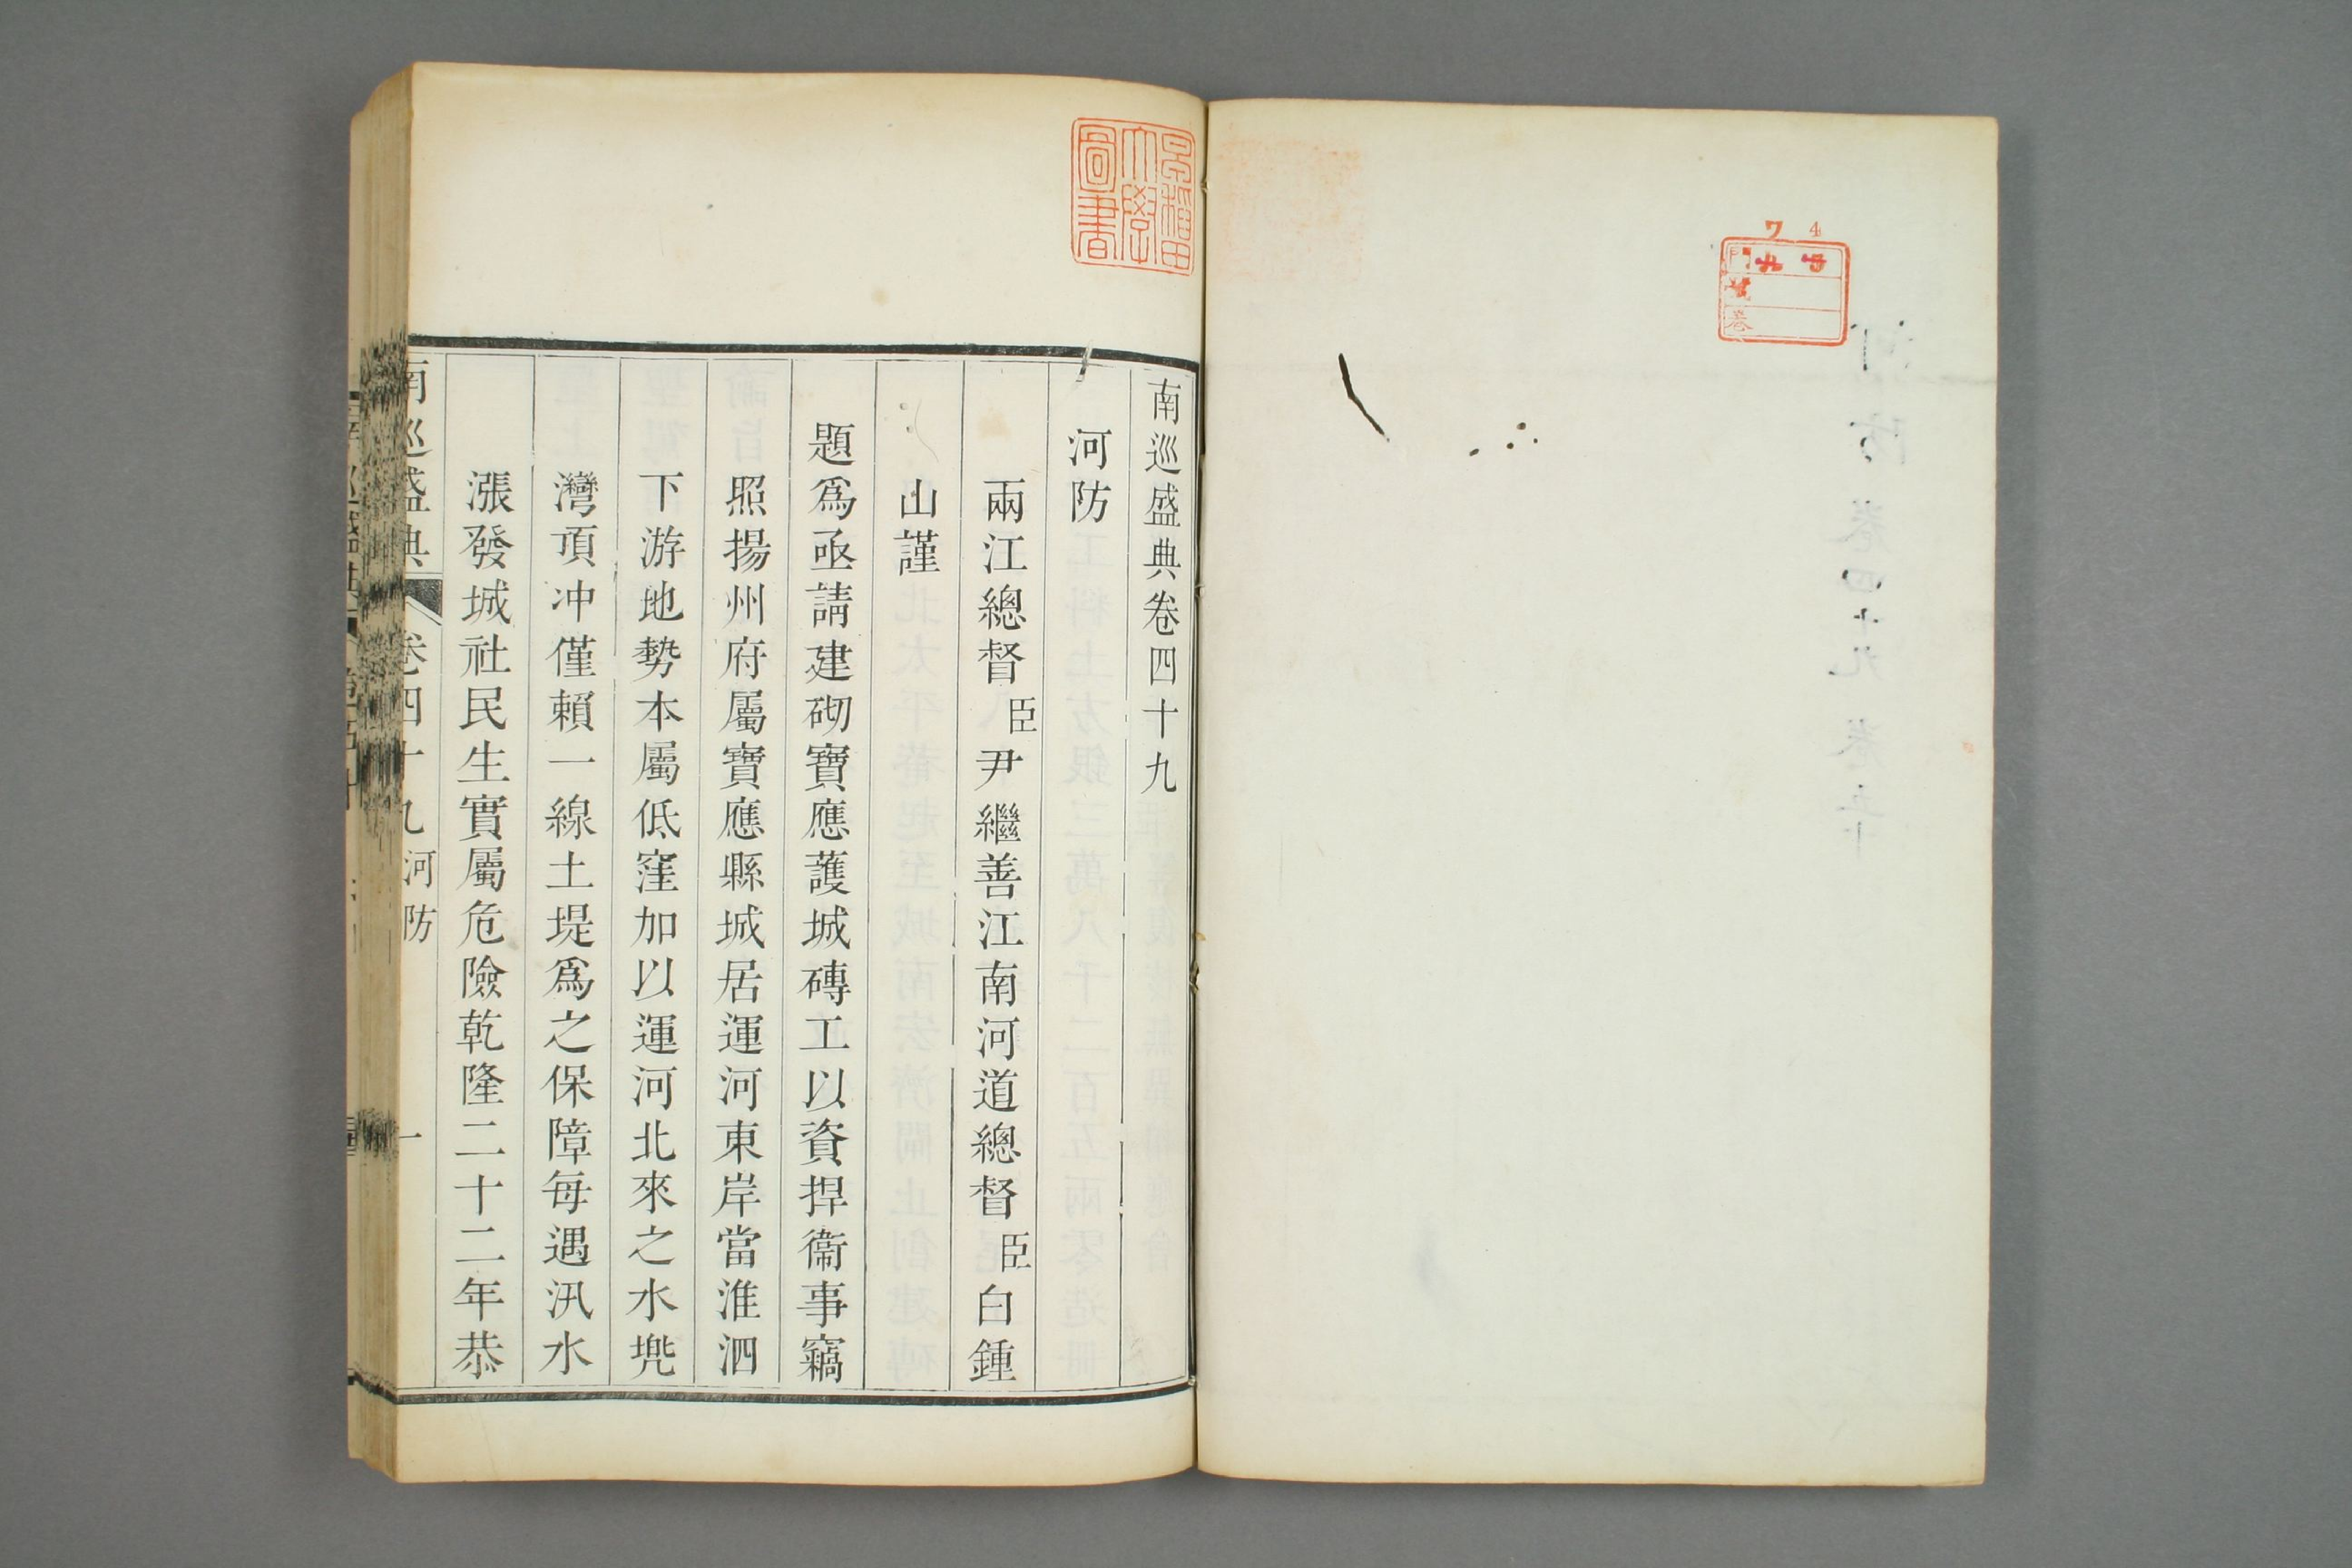 南巡盛典卷四十九
河防
兩江總督臣尹繼善江南河道總督臣白鍾
山謹
題爲亟請建砌寶應護城磚工以資捍衞事竊
照揚州府屬寶應縣城居運河東岸當淮泗
下游地勢本屬低窪加以運河北來之水兠
灣頂冲僅賴一線土堤爲之保障每遇汛水
漲發城社民生實屬危險乾隆二十二年恭
南巡盛典 卷四十九 河防 一
早稻田
大學
圖書
7 4
門
號
卷